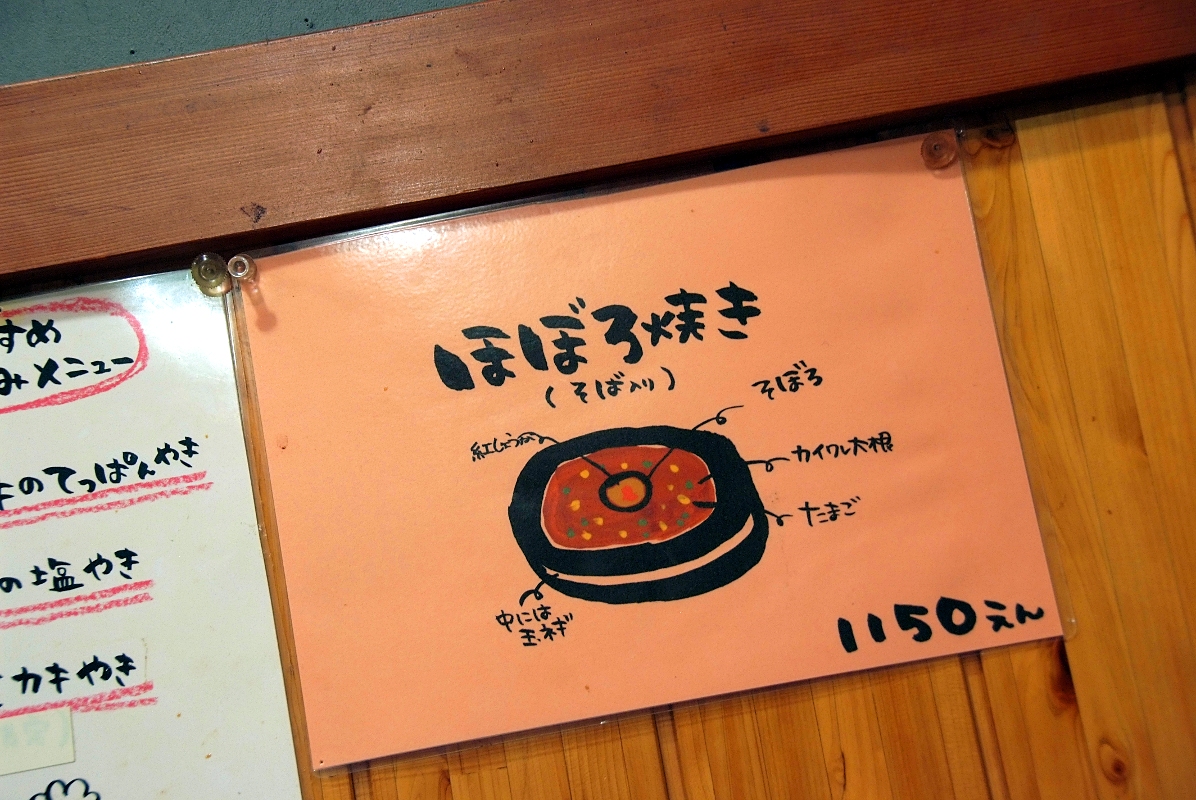 すめ
みメニュー
キのてっぱんやき
の塩やき
カキやき
ほぼろ焼き
(そば入り)
そぼろ
紅しょうが
カイワレ大根
たまご
中には
玉ネギ
1150えん